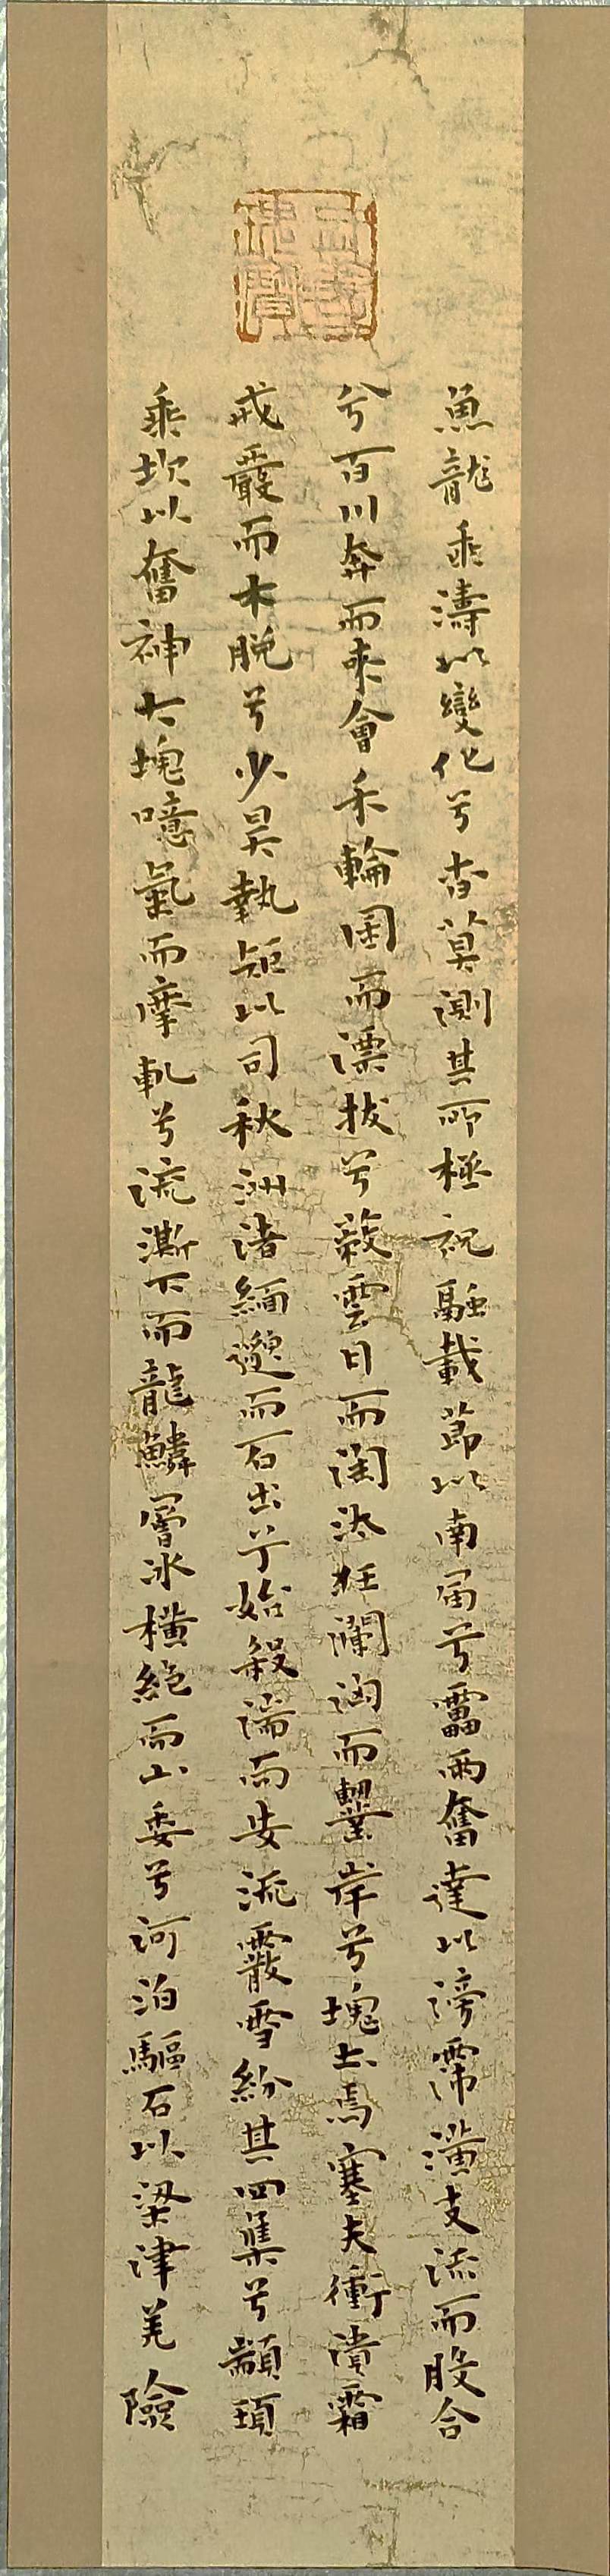 魚龍乖濤以變化兮杳莫測其所極祝融載節以南届兮靁雨奮達以滂霈潢支流而股合
兮百川奔而来會禾輪囷而漂拔兮蔽雲日而淪汰狂瀾洶而鑿岸兮塊土焉塞夫衝潰霜
戒嚴而木脱兮少昊執矩以司秋洲渚緬邈而石出兮始殺湍而安流霰雪紛其四集兮顓頊
乖坎以奮神大塊噫氣而摩軋兮流澌下而龍鱗層冰横絶而山委兮河泊驅石以梁津羌險